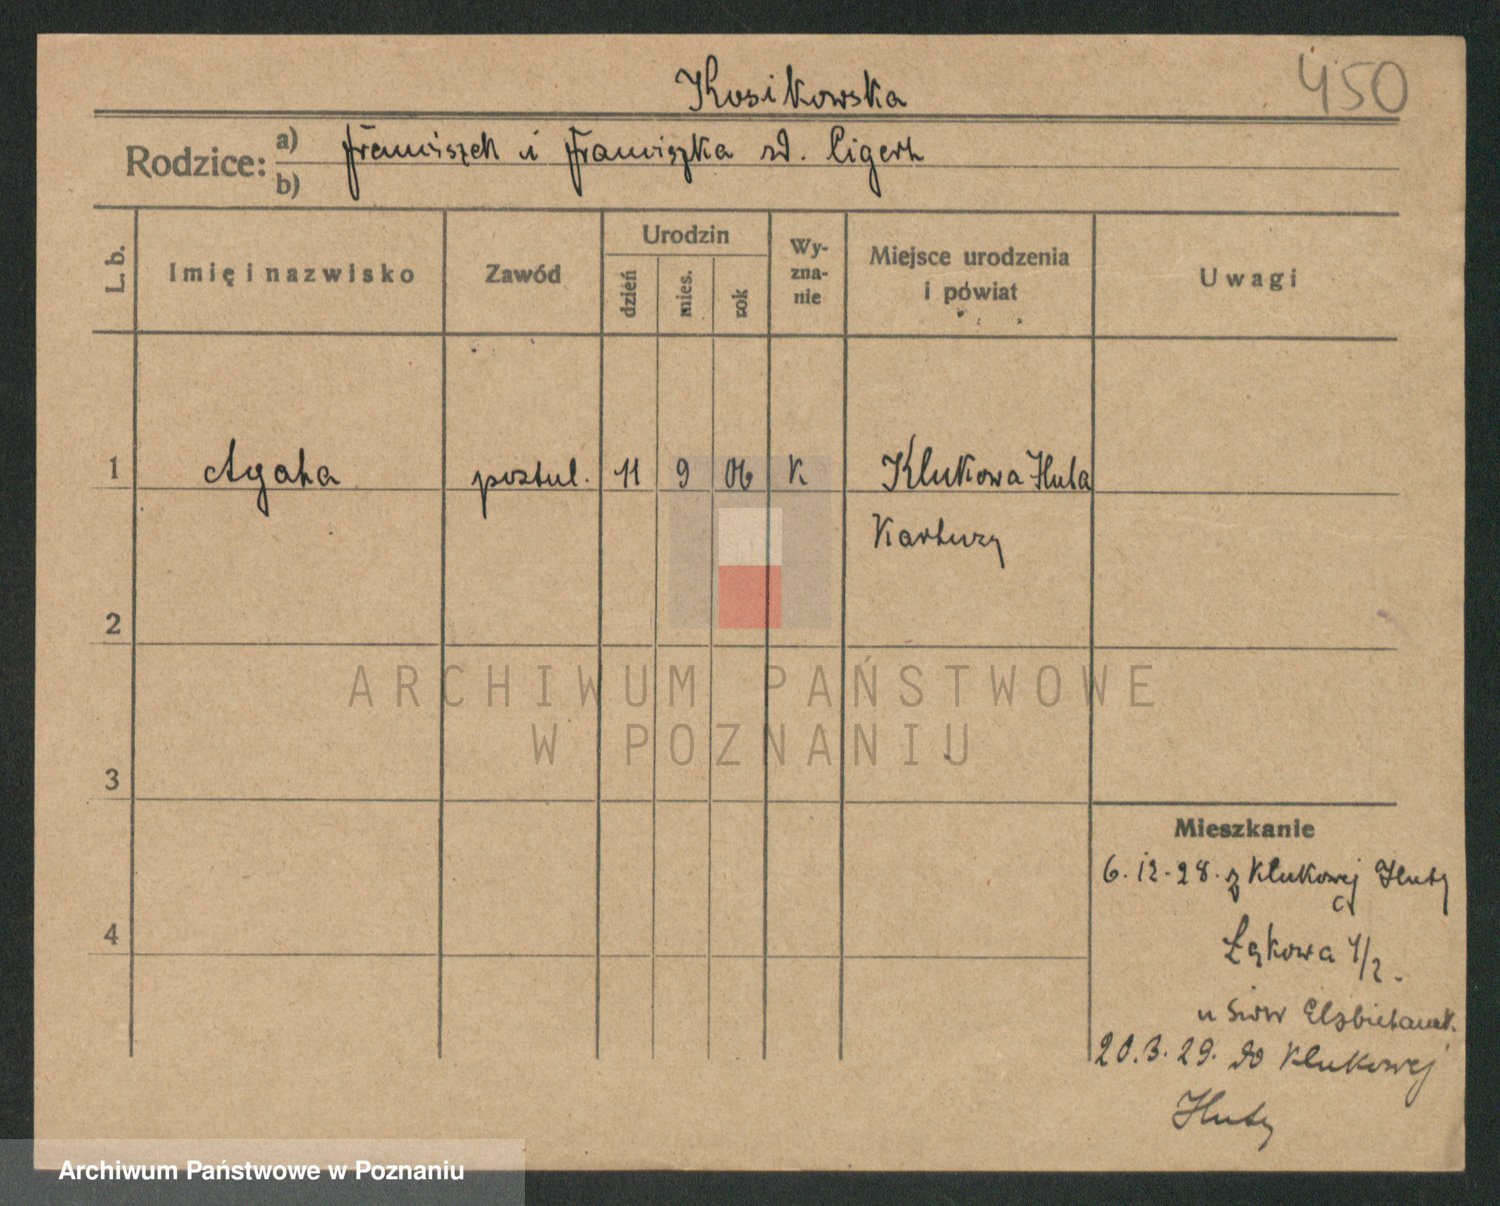 450
Kosikowska
Rodzice: a) Franciszek i Franciszka zd. Cigert
b)
L. b. Imię i nazwisko Zawód Urodzin dzień mies. rok Wy-zna-nie Miejsce urodzenia i powiat Uwagi
1 Agata postul. 11 9 06 K Klukowa Huta
Kartuzy
2
ARCHIWUM PAŃSTWOWE
W POZNANIU
3
Mieszkanie
6.12.28. z Klukowej Huty
4
Łąkowa 1/2.
u Siostr Elżbietanek.
20.3.29. do Klukowej
Huty
Archiwum Państwowe w Poznaniu